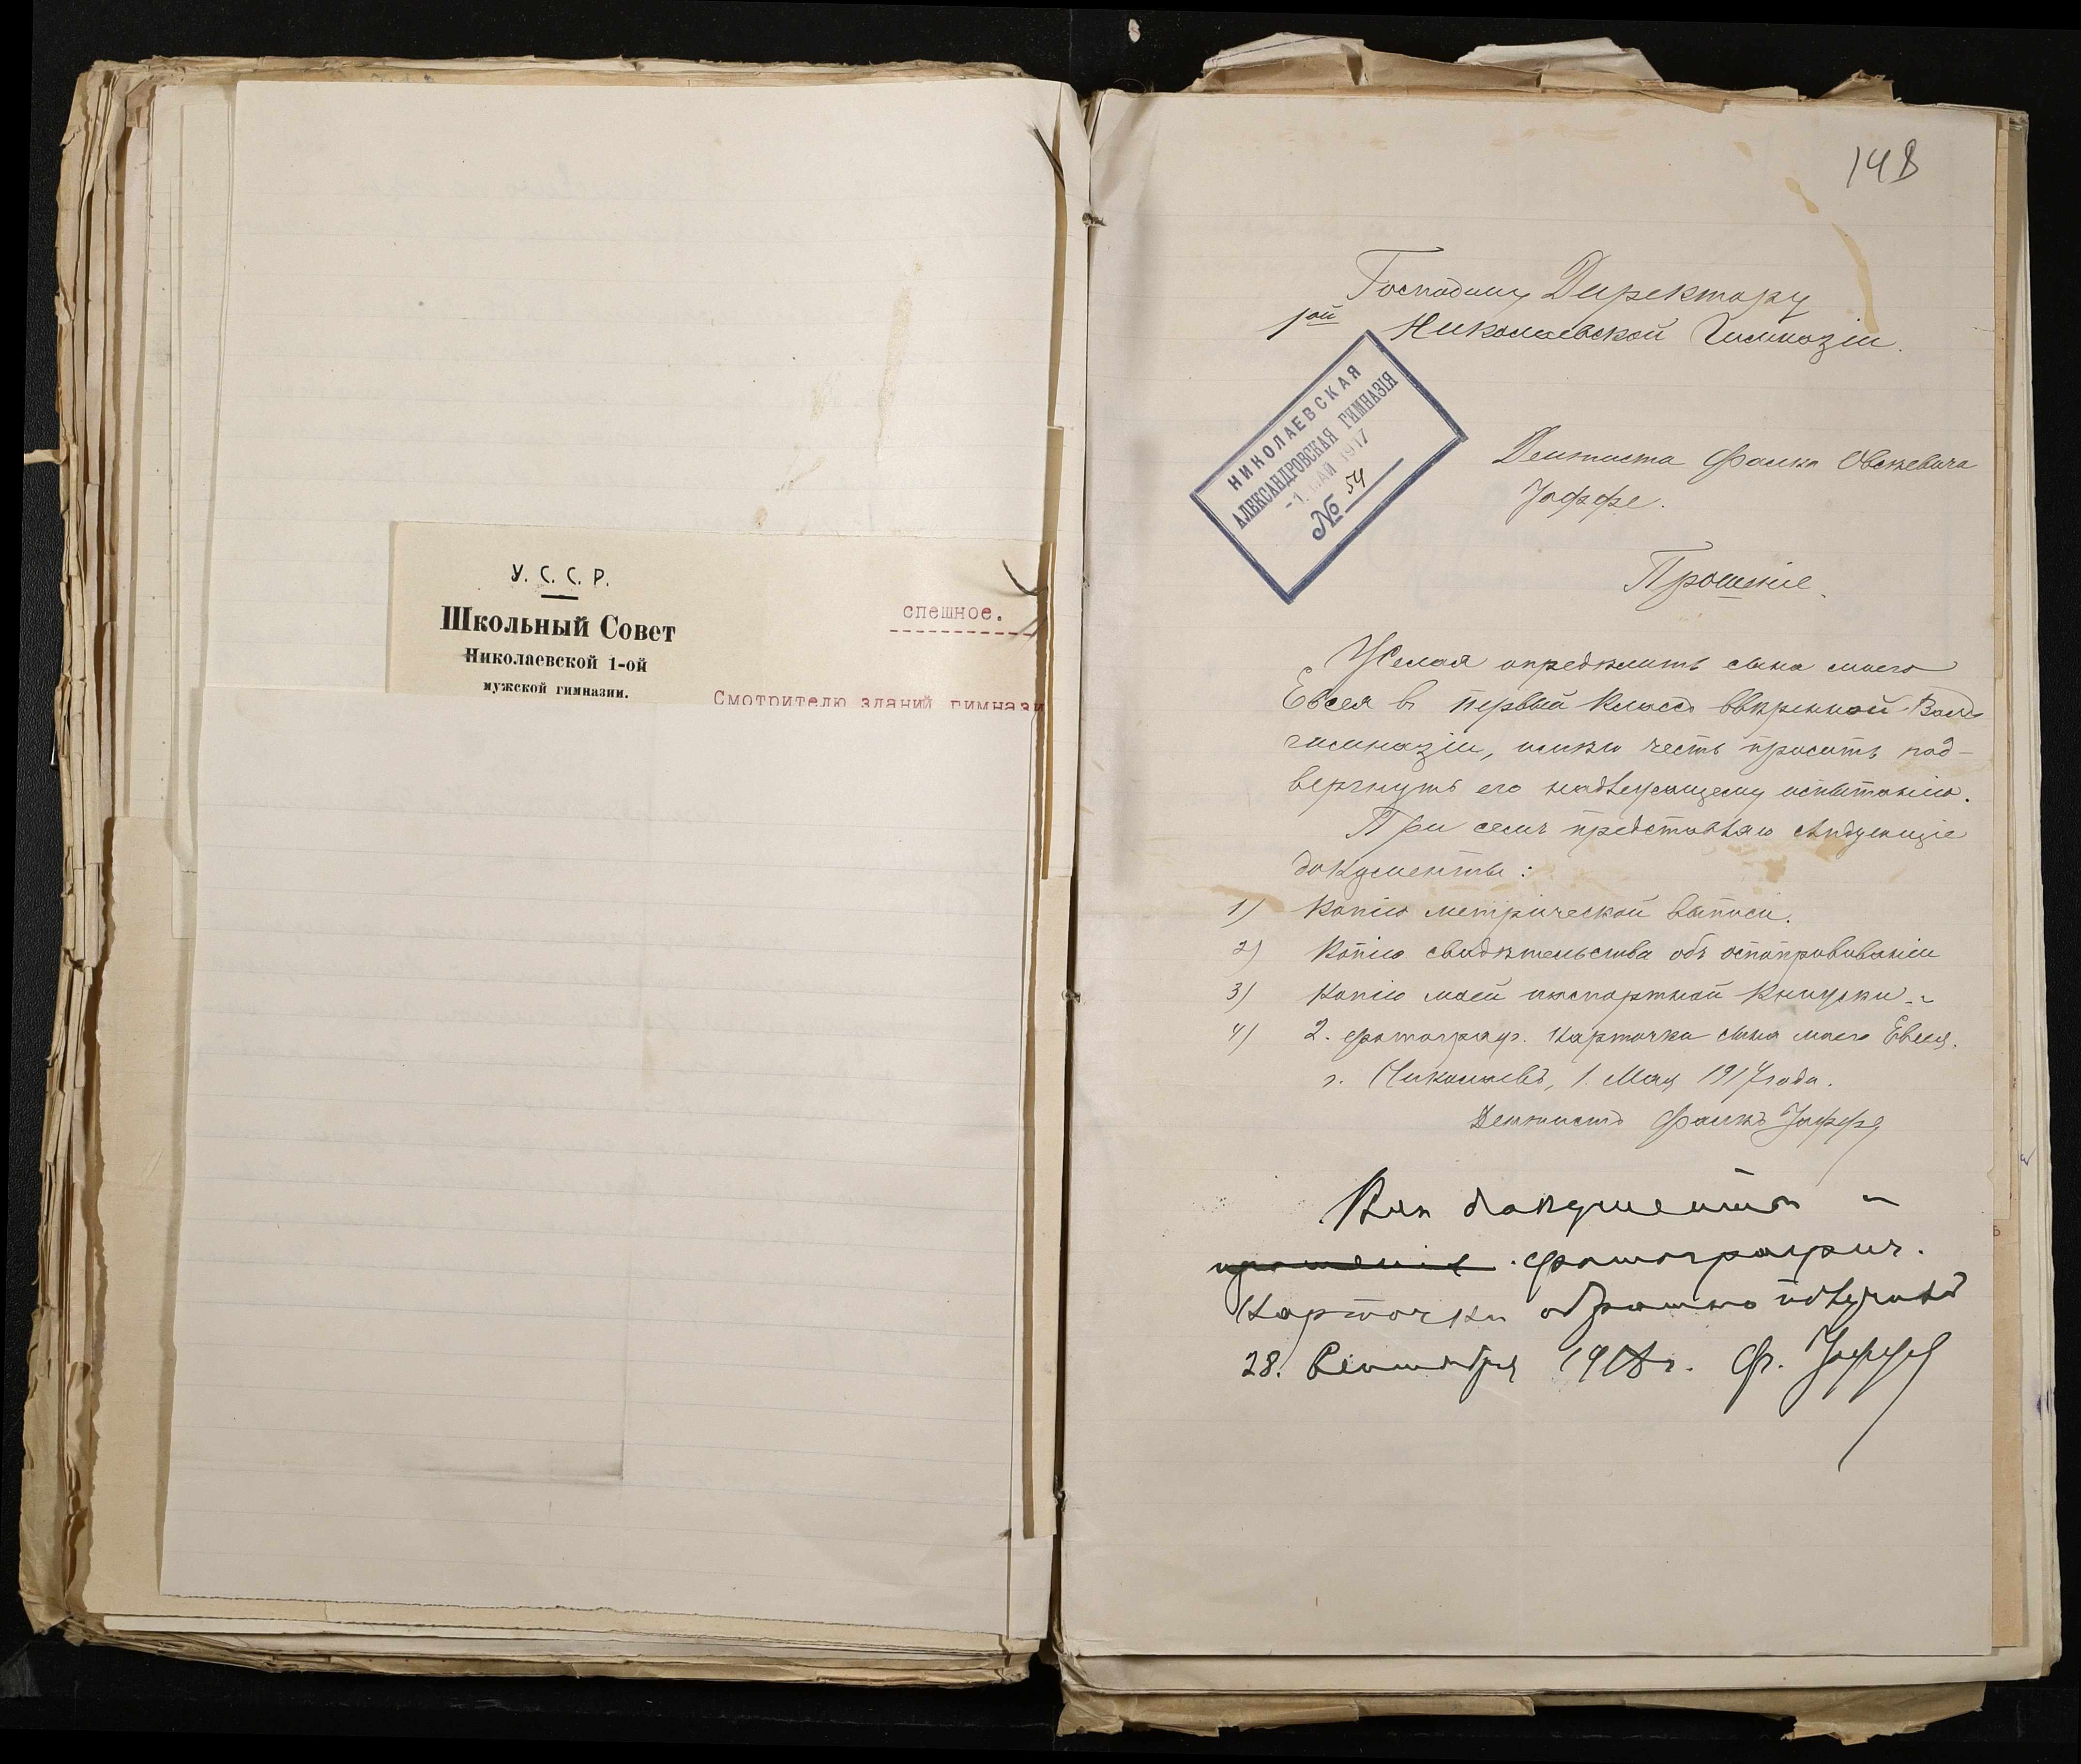 У. С. С. Р.
Школьный Совет
Николаевской 1-ой
мужской гимназии.
спешное.
Смотрителю зданий гимнази
148
Господину Директору
1ой Николаевской Гимназіи.
НИКОЛАЕВСКАЯ
АЛЕКСАНДРОВСКАЯ ГИМНАЗІЯ
-1. МАЙ 1917
№ 54
Дентиста Фалка Овсѣевича
Іоффе.
Прошеніе.
Желая опредѣлить сына моего
Евсея въ первый классъ ввѣренной Вамъ
гимназіи, имѣю честь просить под-
вергнуть его надлежащему испытанію.
При семъ представляю слѣдующіе
документы:
1) Копію метрической выписи.
2) Копію свидѣтельства объ оспопрививаніи
3) Копію моей паспортной книжки.
4) 2. фотограф. карточки сына моего Евсея.
г. Николаевъ, 1. Мая 1917 года.
Дентистъ Фалкъ Іоффе
Всѣ документы и
прошеніе фотографич.
карточки обратно получилъ
28. Сентября 1918 г. Ф. Іоффе